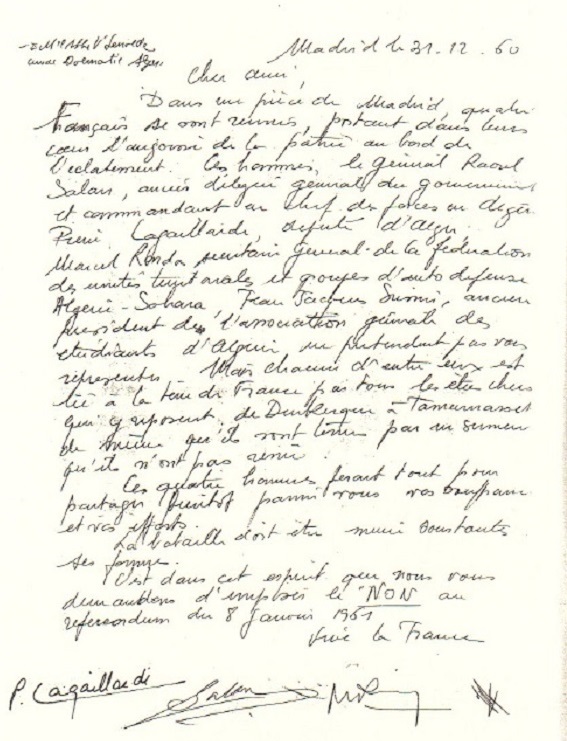 Madrid le 31-12-60
Cher ami,
Dans une pièce de Madrid, quatre
français se sont réunis, portant dans leurs
cœur l'angoisse de la patrie au bord de
l'éclatement. Ces hommes, le général Raoul
Salan, ancien délégué général du gouvernement
et commandant en chef des forces en Algérie
Pierre Lagaillarde, député d'Alger,
Marcel Ronda, secrétaire général de la fédération
des unités territoriales et groupes d'auto défense
Algérie-Sahara, Jean Jacques Susini, ancien
président de l'association générale des
étudiants d'Algérie ne prétendent pas vous
représenter. Mais chacun d'entre eux est
lié à la terre de France par tous les êtres chers
qui y reposent, de Dunkerque à Tamanrasset
de même qu'ils sont tenus par un serment
qu'ils n'ont pas renié.
Ces quatre hommes feront tout pour
partager bientôt parmi vous vos souffrances
et vos efforts.
La bataille doit être menée sous toutes
ses formes.
C'est dans cet esprit que nous vous
demandons d'imposer le NON au
référendum du 8 Janvier 1961
Vive la France
P. Lagaillarde Salan